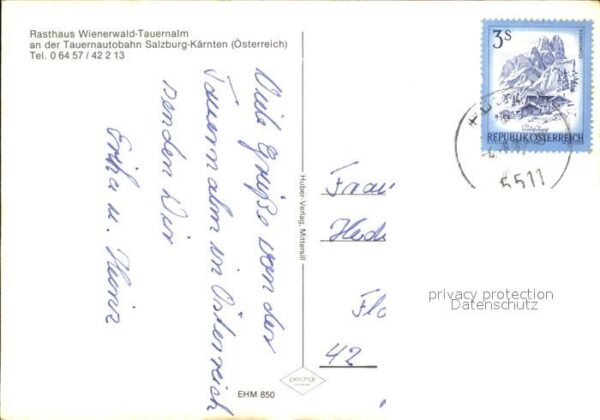 Rasthaus Wienerwald-Tauernalm
an der Tauernautobahn Salzburg-Kärnten (Österreich)
Tel. 0 64 57 / 42 2 13
Viele Grüße von der
Tauernalm in Österreich
senden Dir
Erika u. Heinz
Huber-Verlag, Mittersill
pechar
EHM 850
3S
REPUBLIK ÖSTERREICH
5511
Frau
42
privacy protection
Datenschutz